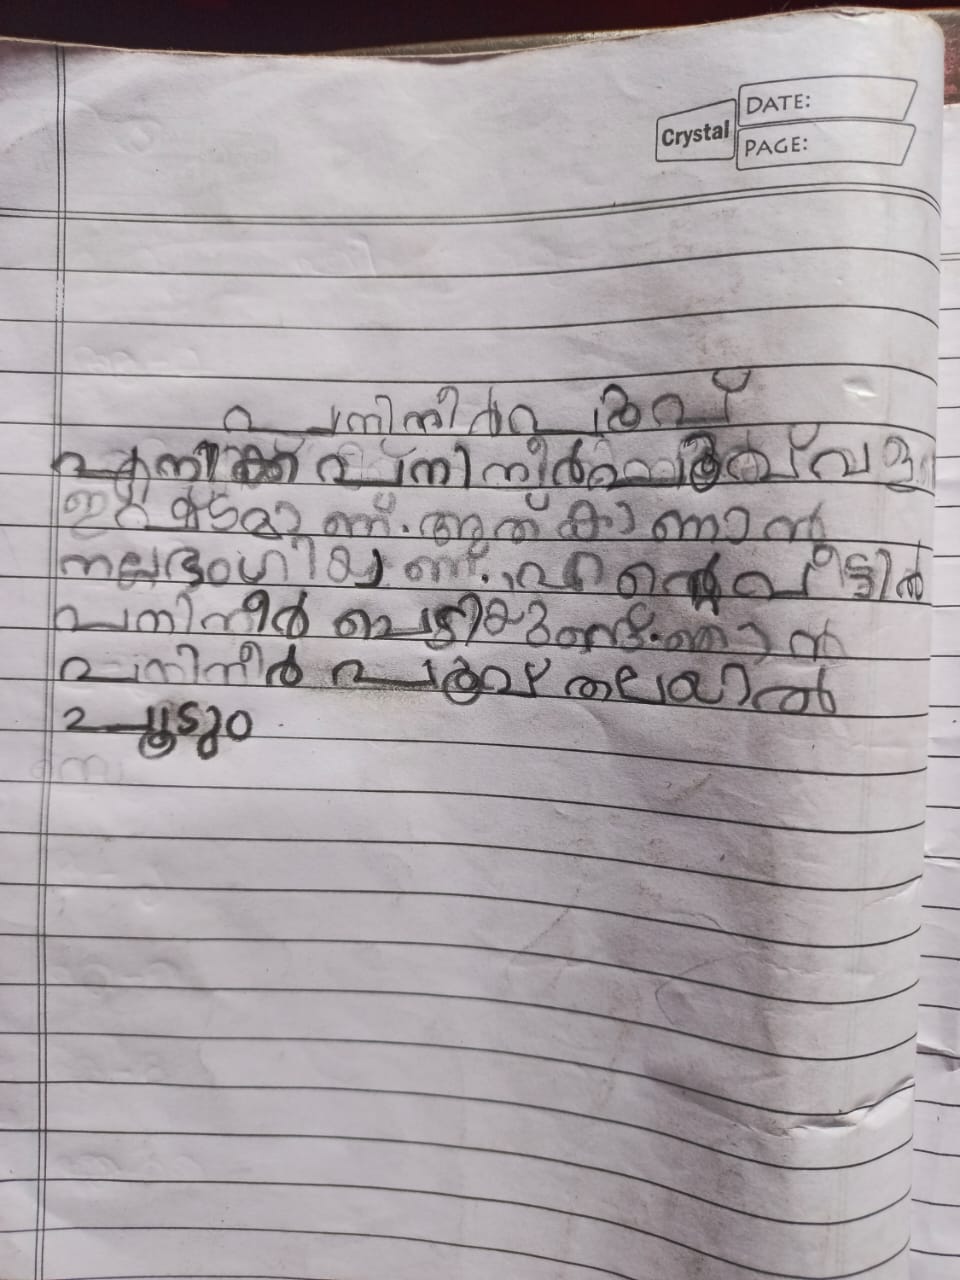 Crystal
DATE:
PAGE:
പനിനീർപൂവ്
എനിക്ക് പനിനീർപൂവ് വള
ഇഷ്ടമാണ്. അത് കാണാൻ
നല്ലഭംഗിയാണ്. എന്റെ വീട്ടിൽ
പനിനീർ ചെടിയുണ്ട്. ഞാൻ
പനിനീർ പൂവ് തലയിൽ
ചൂടും